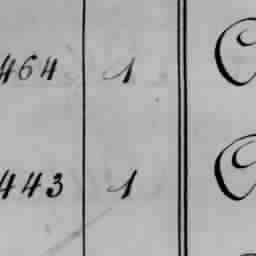 464 1 C
443 1 C